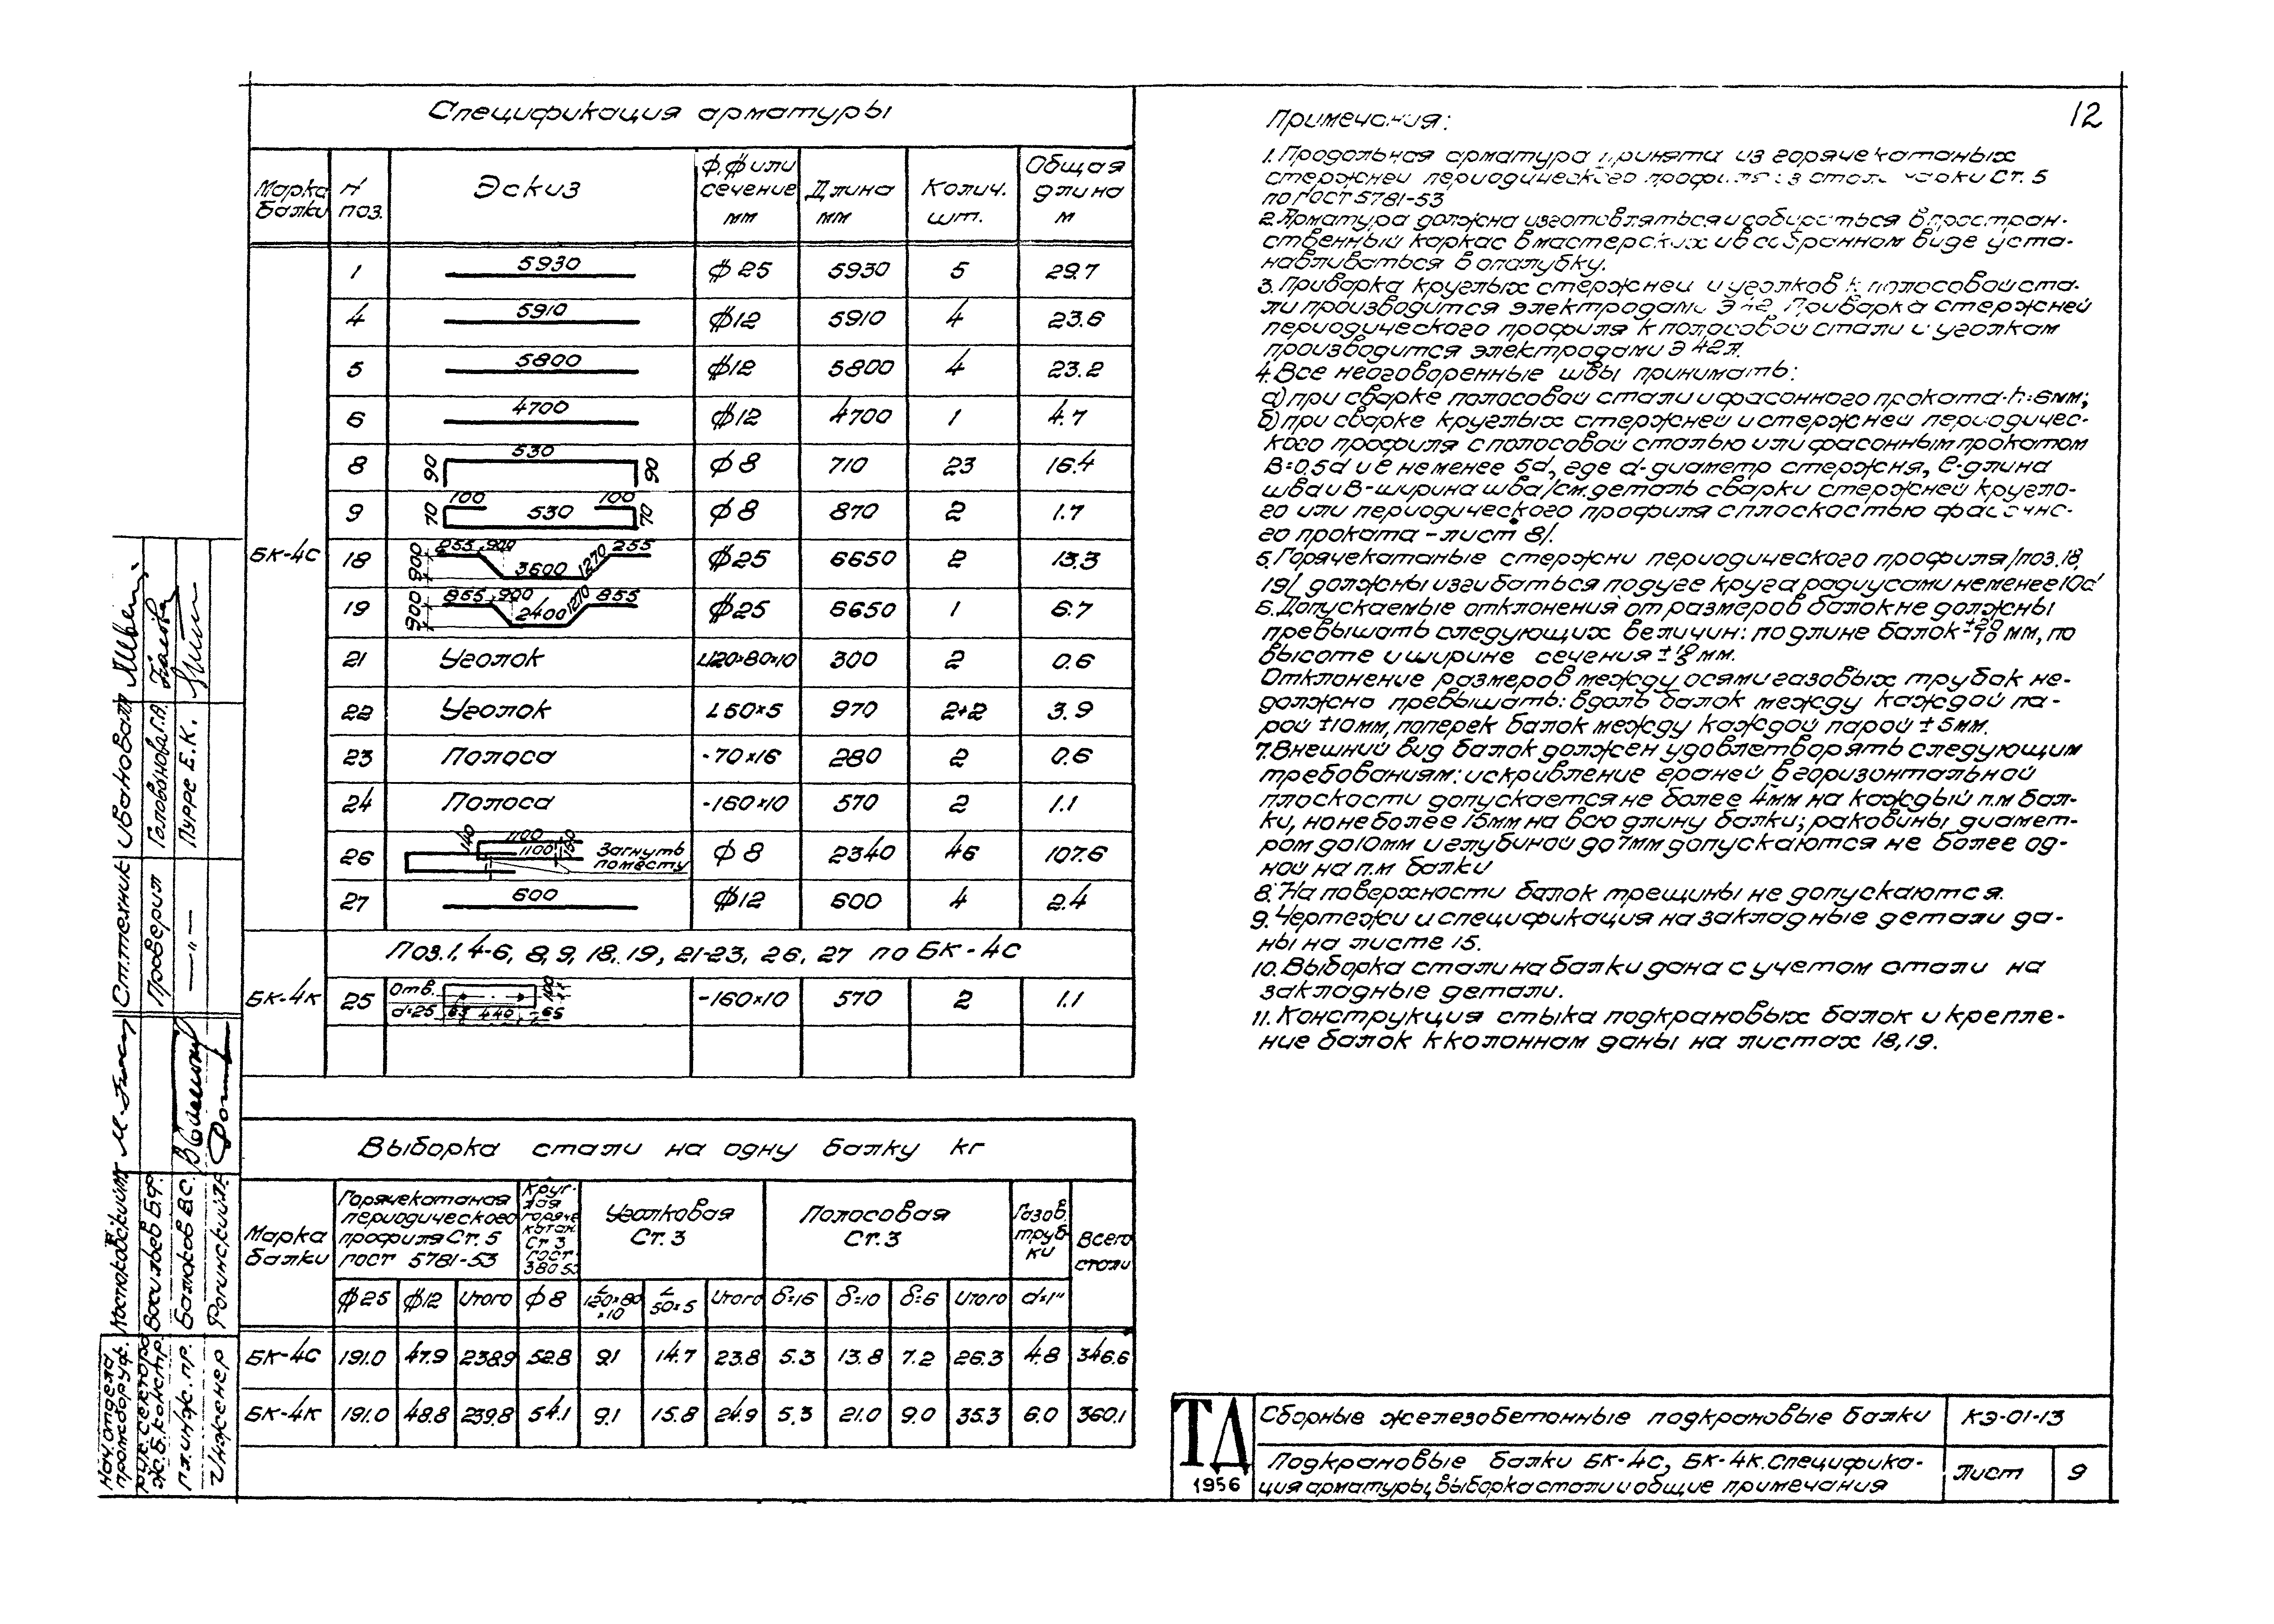 12
Спецификация арматуры
Марка балки | N поз. | Эскиз | Ф,ф или сечение мм | Длина мм | Колич. шт. | Общая длина м
БК-4С
1 | 5930 | ф25 | 5930 | 5 | 29.7
4 | 5910 | ф12 | 5910 | 4 | 23.6
5 | 5800 | ф12 | 5800 | 4 | 23.2
6 | 4700 | ф12 | 4700 | 1 | 4.7
8 | 90 530 90 | ф8 | 710 | 23 | 16.4
9 | 70 100 530 100 70 | ф8 | 870 | 2 | 1.7
18 | 900 255 900 3600 1270 255 | ф25 | 6650 | 2 | 13.3
19 | 900 855 900 2400 1270 855 | ф25 | 6650 | 1 | 6.7
21 | Уголок | L120×80×10 | 300 | 2 | 0.6
22 | Уголок | L50×5 | 970 | 2+2 | 3.9
23 | Полоса | -70×16 | 280 | 2 | 0.6
24 | Полоса | -160×10 | 570 | 2 | 1.1
26 | 140 1100 1100 Загнуть по месту | ф8 | 2340 | 46 | 107.6
27 | 600 | ф12 | 600 | 4 | 2.4
БК-4К
Поз.1, 4-6, 8, 9, 18, 19, 21-23, 26, 27 по БК-4С
25 | Отв. d=25 65 440 65 100 | -160×10 | 570 | 2 | 1.1
Выборка стали на одну балку кг
Марка балки | Горячекатаная периодического профиля Ст. 5 ГОСТ 5781-53 | Круглая горячекатан. Ст 3 ГОСТ 380 53 | Уголковая Ст. 3 | Полосовая Ст. 3 | Газов. трубки | Всего стали
ф25 | ф12 | Итого | ф8 | L 120×80×10 | L 50×5 | Итого | δ=16 | δ=10 | δ=6 | Итого | d=1"
БК-4С | 191.0 | 47.9 | 238.9 | 52.8 | 9.1 | 14.7 | 23.8 | 5.3 | 13.8 | 7.2 | 26.3 | 4.8 | 346.6
БК-4К | 191.0 | 48.8 | 239.8 | 54.1 | 9.1 | 15.8 | 24.9 | 5.3 | 21.0 | 9.0 | 35.3 | 6.0 | 360.1
Примечания:
1. Продольная арматура принята из горячекатаных
стержней периодического профиля из стали марки Ст. 5
по ГОСТ 5781-53
2. Арматура должна изготовляться и собираться в простран-
ственный каркас в мастерских и в собранном виде уста-
навливаться в опалубку.
3. Приварка круглых стержней и уголков к полосовой ста-
ли производится электродами Э42. Приварка стержней
периодического профиля к полосовой стали и уголкам
производится электродами Э42А.
4. Все неоговоренные швы принимать:
а) при сварке полосовой стали и фасонного проката-h=6мм;
б) при сварке круглых стержней и стержней периодичес-
кого профиля с полосовой сталью или фасонным прокатом
B=0,5d и e не менее 5d, где d-диаметр стержня, e-длина
шва и B-ширина шва/см. деталь сварки стержней кругло-
го или периодического профиля с плоскостью фасонно-
го проката-лист 8/.
5. Горячекатаные стержни периодического профиля/поз.18,
19/ должны изгибаться по дуге круга радиусами не менее 10d
6. Допускаемые отклонения от размеров балок не должны
превышать следующих величин: по длине балок +20 -10 мм, по
высоте и ширине сечения ± мм.
Отклонение размеров между осями газовых трубок не-
должно превышать: вдоль балок между каждой па-
рой ±10мм, поперек балок между каждой парой ±5мм.
7. Внешний вид балок должен удовлетворять следующим
требованиям: искривление граней в горизонтальной
плоскости допускается не более 4мм на каждый п.м бал-
ки, но не более 15мм на всю длину балки; раковины диамет-
ром до 10мм и глубиной до 7мм допускаются не более од-
ной на п.м балки
8. На поверхности балок трещины не допускаются.
9. Чертежи и спецификация на закладные детали да-
ны на листе 15.
10. Выборка стали на балки дана с учетом стали на
закладные детали.
11. Конструкция стыка подкрановых балок и крепле-
ние балок к колоннам даны на листах 18,19.
ТД
1956
Сборные железобетонные подкрановые балки | КЭ-01-13
Подкрановые балки БК-4С, БК-4К. Специфика-
ция арматуры, выборка стали и общие примечания
Лист | 9
Нач. отдела промсборуж. Костюковский
Рук. сектора ж.б. констр. Васильев Б.Ф.
Гл. инж. пр. Балюков В.С.
Инженер Рогинский
Ст. техник Иванова
Проверил Голованова Г.А.
—"— Пурре Е.К.